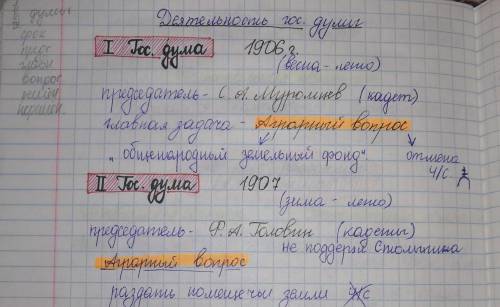 думы
срок
пред
главн
вопрос
Деятельность гос. думы
I Гос. дума 1906 г.
(весна - лето)
председатель - С. А. Муромцев (кадет)
главная задача - Аграрный вопрос
"общенародный земельный фонд" отмена
ч/с
II Гос. дума 1907
(зима - лето)
председатель - Ф. А. Головин (кадеты)
не поддерж Столыпина
Аграрный вопрос
раздать помещечьи земли